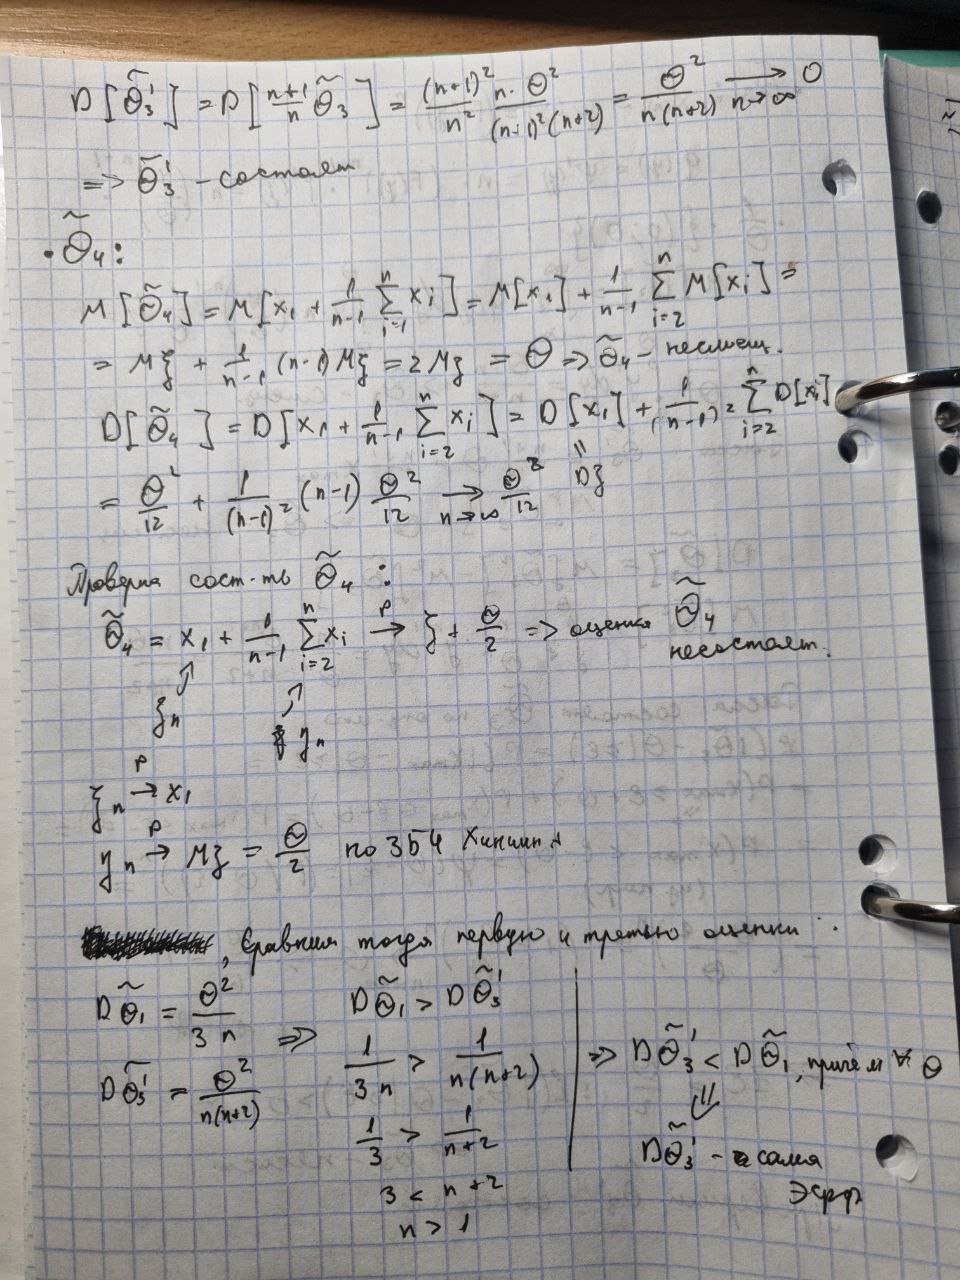 D[θ̃₃'] = D[(n+1)/n θ̃₃] = (n+1)²/n² · n·θ²/((n+1)²(n+2)) = θ²/(n(n+2)) →(n→∞) 0
=> θ̃₃' - состоят
• θ̃₄:
M[θ̃₄] = M[x₁ + 1/(n-1) Σ(i=1..n) xᵢ] = M[x₁] + 1/(n-1) Σ(i=2..n) M[xᵢ] =
= Mξ + 1/(n-1) (n-1) Mξ = 2Mξ = θ => θ̃₄ - несмещ.
D[θ̃₄] = D[x₁ + 1/(n-1) Σ(i=2..n) xᵢ] = D[x₁] + 1/(n-1)² Σ(i=2..n) D[xᵢ]
= θ²/12 + 1/(n-1)² (n-1) θ²/12 →(n→∞) θ²/12
" Dξ
Проверка сост-ть θ̃₄:
θ̃₄ = x₁ + 1/(n-1) Σ(i=2..n) xᵢ →(P) ξ + θ/2 => оценка θ̃₄ несостоят.
ξₙ
ηₙ
ξₙ →(P) x₁
ηₙ →(P) Mξ = θ/2 по ЗБЧ Хинчина
, Сравним тогда первую и третью оценки.
Dθ̃₁ = θ²/(3n)
Dθ̃₃' = θ²/(n(n+2))
=> Dθ̃₁ > Dθ̃₃'
1/(3n) > 1/(n(n+2))
1/3 > 1/(n+2)
3 < n+2
n > 1
=> Dθ̃₃' < Dθ̃₁, причём ∀ θ
⇓
Dθ̃₃' - самая
Эфф